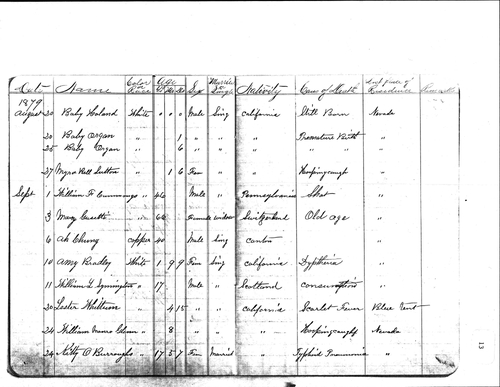 Date Name Color or Race Age Sex Married or Single Nativity Cause of Death Residence
1879
August 20 Baby Holand White Male Sing California Still Born Nevada
20 Baby Organ " 1 " " " Premature Birth "
25 Baby Organ " 6 " " " " " "
27 Myra Bell Sutton " 1 6 Fem " " Hooping cough "
Sept 1 William F Cummings " 46 Male " Pennsylvania Shot "
3 Mary " Female widow Switzerland Old age "
6 Ah Chung Copper 40 Male Sing Canton "
10 Amy Bradley White 1 9 9 Fem Sing California Dyptheria "
11 William " 17 Male " Scotland consumption "
20 Lester " 4 15 " " California Scarlet Fever Blue Tent
24 William " 8 " " " Hooping cough Nevada
24 Kitty O Burroughs " 17 5 7 Fem Married " Typhoid Pneumonia "
13